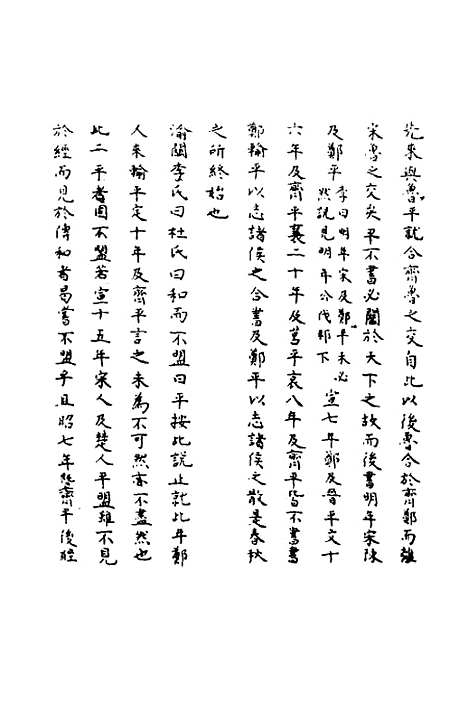 先來與魯平就合齊魯之交自此以後魯合於齊鄭而離
宋魯之交矣平不書必關於天下之故而後書明年宋陳
及鄭平李曰明年宋及鄭平未必然説見明年公伐邾下宣七年鄭及晉平文十
六年及齊平襄二十年及莒平哀八年及齊平皆不書書
鄭輸平以志諸侯之合書及鄭平以志諸侯之散是春秋
之所終始也
渝關李氏曰杜氏曰和而不盟曰平按此説止就此年鄭
人來輸平定十年及齊平言之未為不可然亦不盡然也
此二平者固不盟若宣十五年宋人及楚人平盟雖不見
於經而見於傳和者曷嘗不盟乎且昭七年暨齊平後